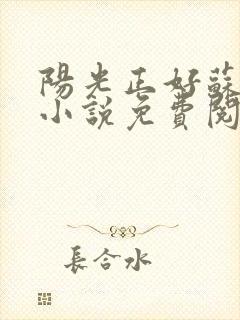 陽光正好蘇
小說免費閱
長合水